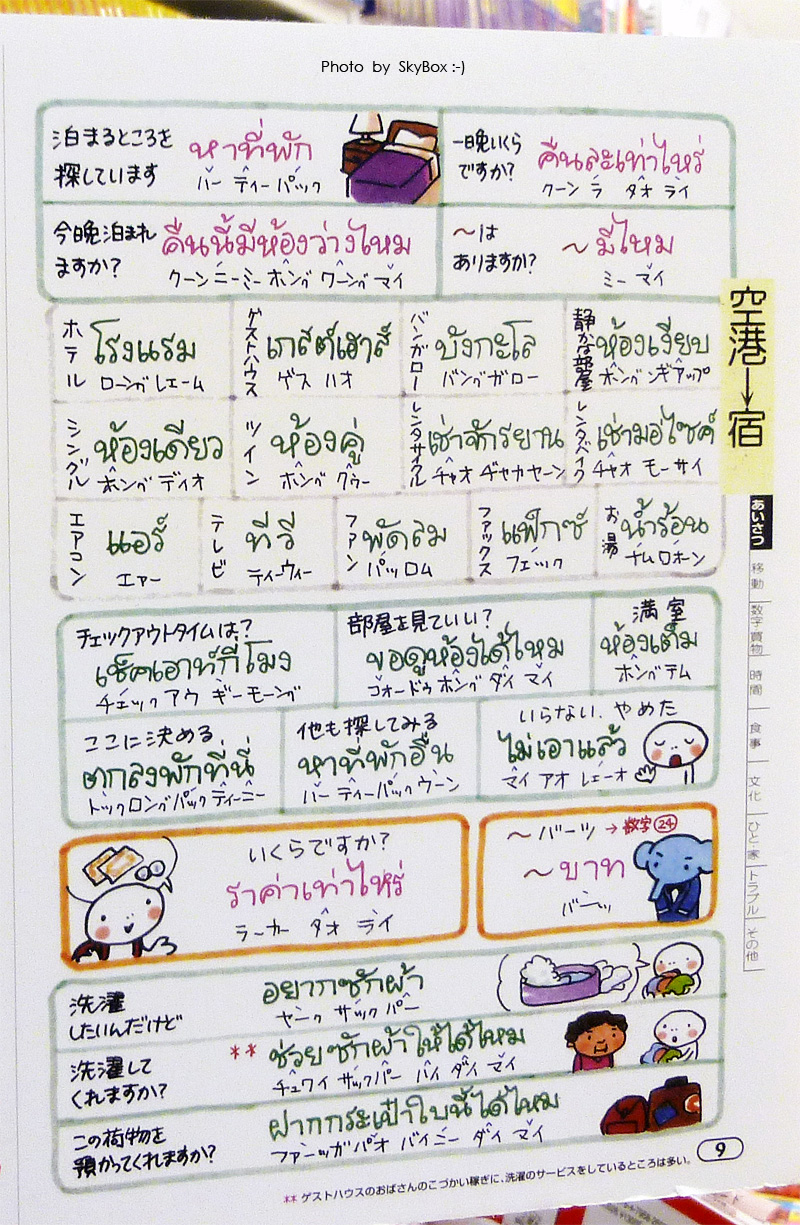 Photo by SkyBox :-)
泊まるところを
探しています
หาที่พัก
ハー ティー パック
一晩いくら
ですか?
คืนละเท่าไหร่
クーン ラ タオ ライ
今晩泊まれ
ますか?
คืนนี้มีห้องว่างไหม
クーン ニー ミー ホング ワーング マイ
〜は
ありますか?
〜มีไหม
ミー マイ
空港→宿
ホテル
โรงแรม
ローング レエーム
ゲストハウス
เกสต์เฮาส์
ゲス ハオ
バンガロー
บังกะโล
バングガロー
静かな部屋
ห้องเงียบ
ホング ンギアップ
シングル
ห้องเดียว
ホング ディオ
ツイン
ห้องคู่
ホング グゥー
レンタサイクル
เช่าจักรยาน
チャオ ヂャカヤーン
レンタバイク
เช่ามอไซค์
チャオ モーサイ
エアコン
แอร์
エアー
テレビ
ทีวี
ティーウィー
ファン
พัดลม
パッロム
ファックス
แฟ็กซ์
フェック
お湯
น้ำร้อน
ナムロホーン
チェックアウトタイムは?
เช็คเอาท์กี่โมง
チエック アウ ギーモーング
部屋を見ていい?
ขอดูห้องได้ไหม
コオードゥ ホング ダイ マイ
満室
ห้องเต็ม
ホング テム
ここに決める
ตกลงพักที่นี่
トックロングパック ティーニー
他も探してみる
หาที่พักอื่น
ハー ティーパック ウーン
いらない.やめた
ไม่เอาแล้ว
マイ アオ レエーオ
いくらですか?
ราคาเท่าไหร่
ラーカー タオ ライ
〜バーツ→数字24
〜บาท
バーッ
洗濯
したいんだけど
อยากซักผ้า
ヤーク サック パー
洗濯して
くれますか?
** ช่วยซักผ้าให้ได้ไหม
チュワイ サックパー ハイ ダイ マイ
この荷物を
預かってくれますか?
ฝากกระเป๋าใบนี้ได้ไหม
ファーッガパオ バイニー ダイ マイ
あいさつ
移動
数字買物
時間
食事
文化
ひと・家
トラブル
その他
9
** ゲストハウスのおばさんのこづかい稼ぎに、洗濯のサービスをしているところは多い。